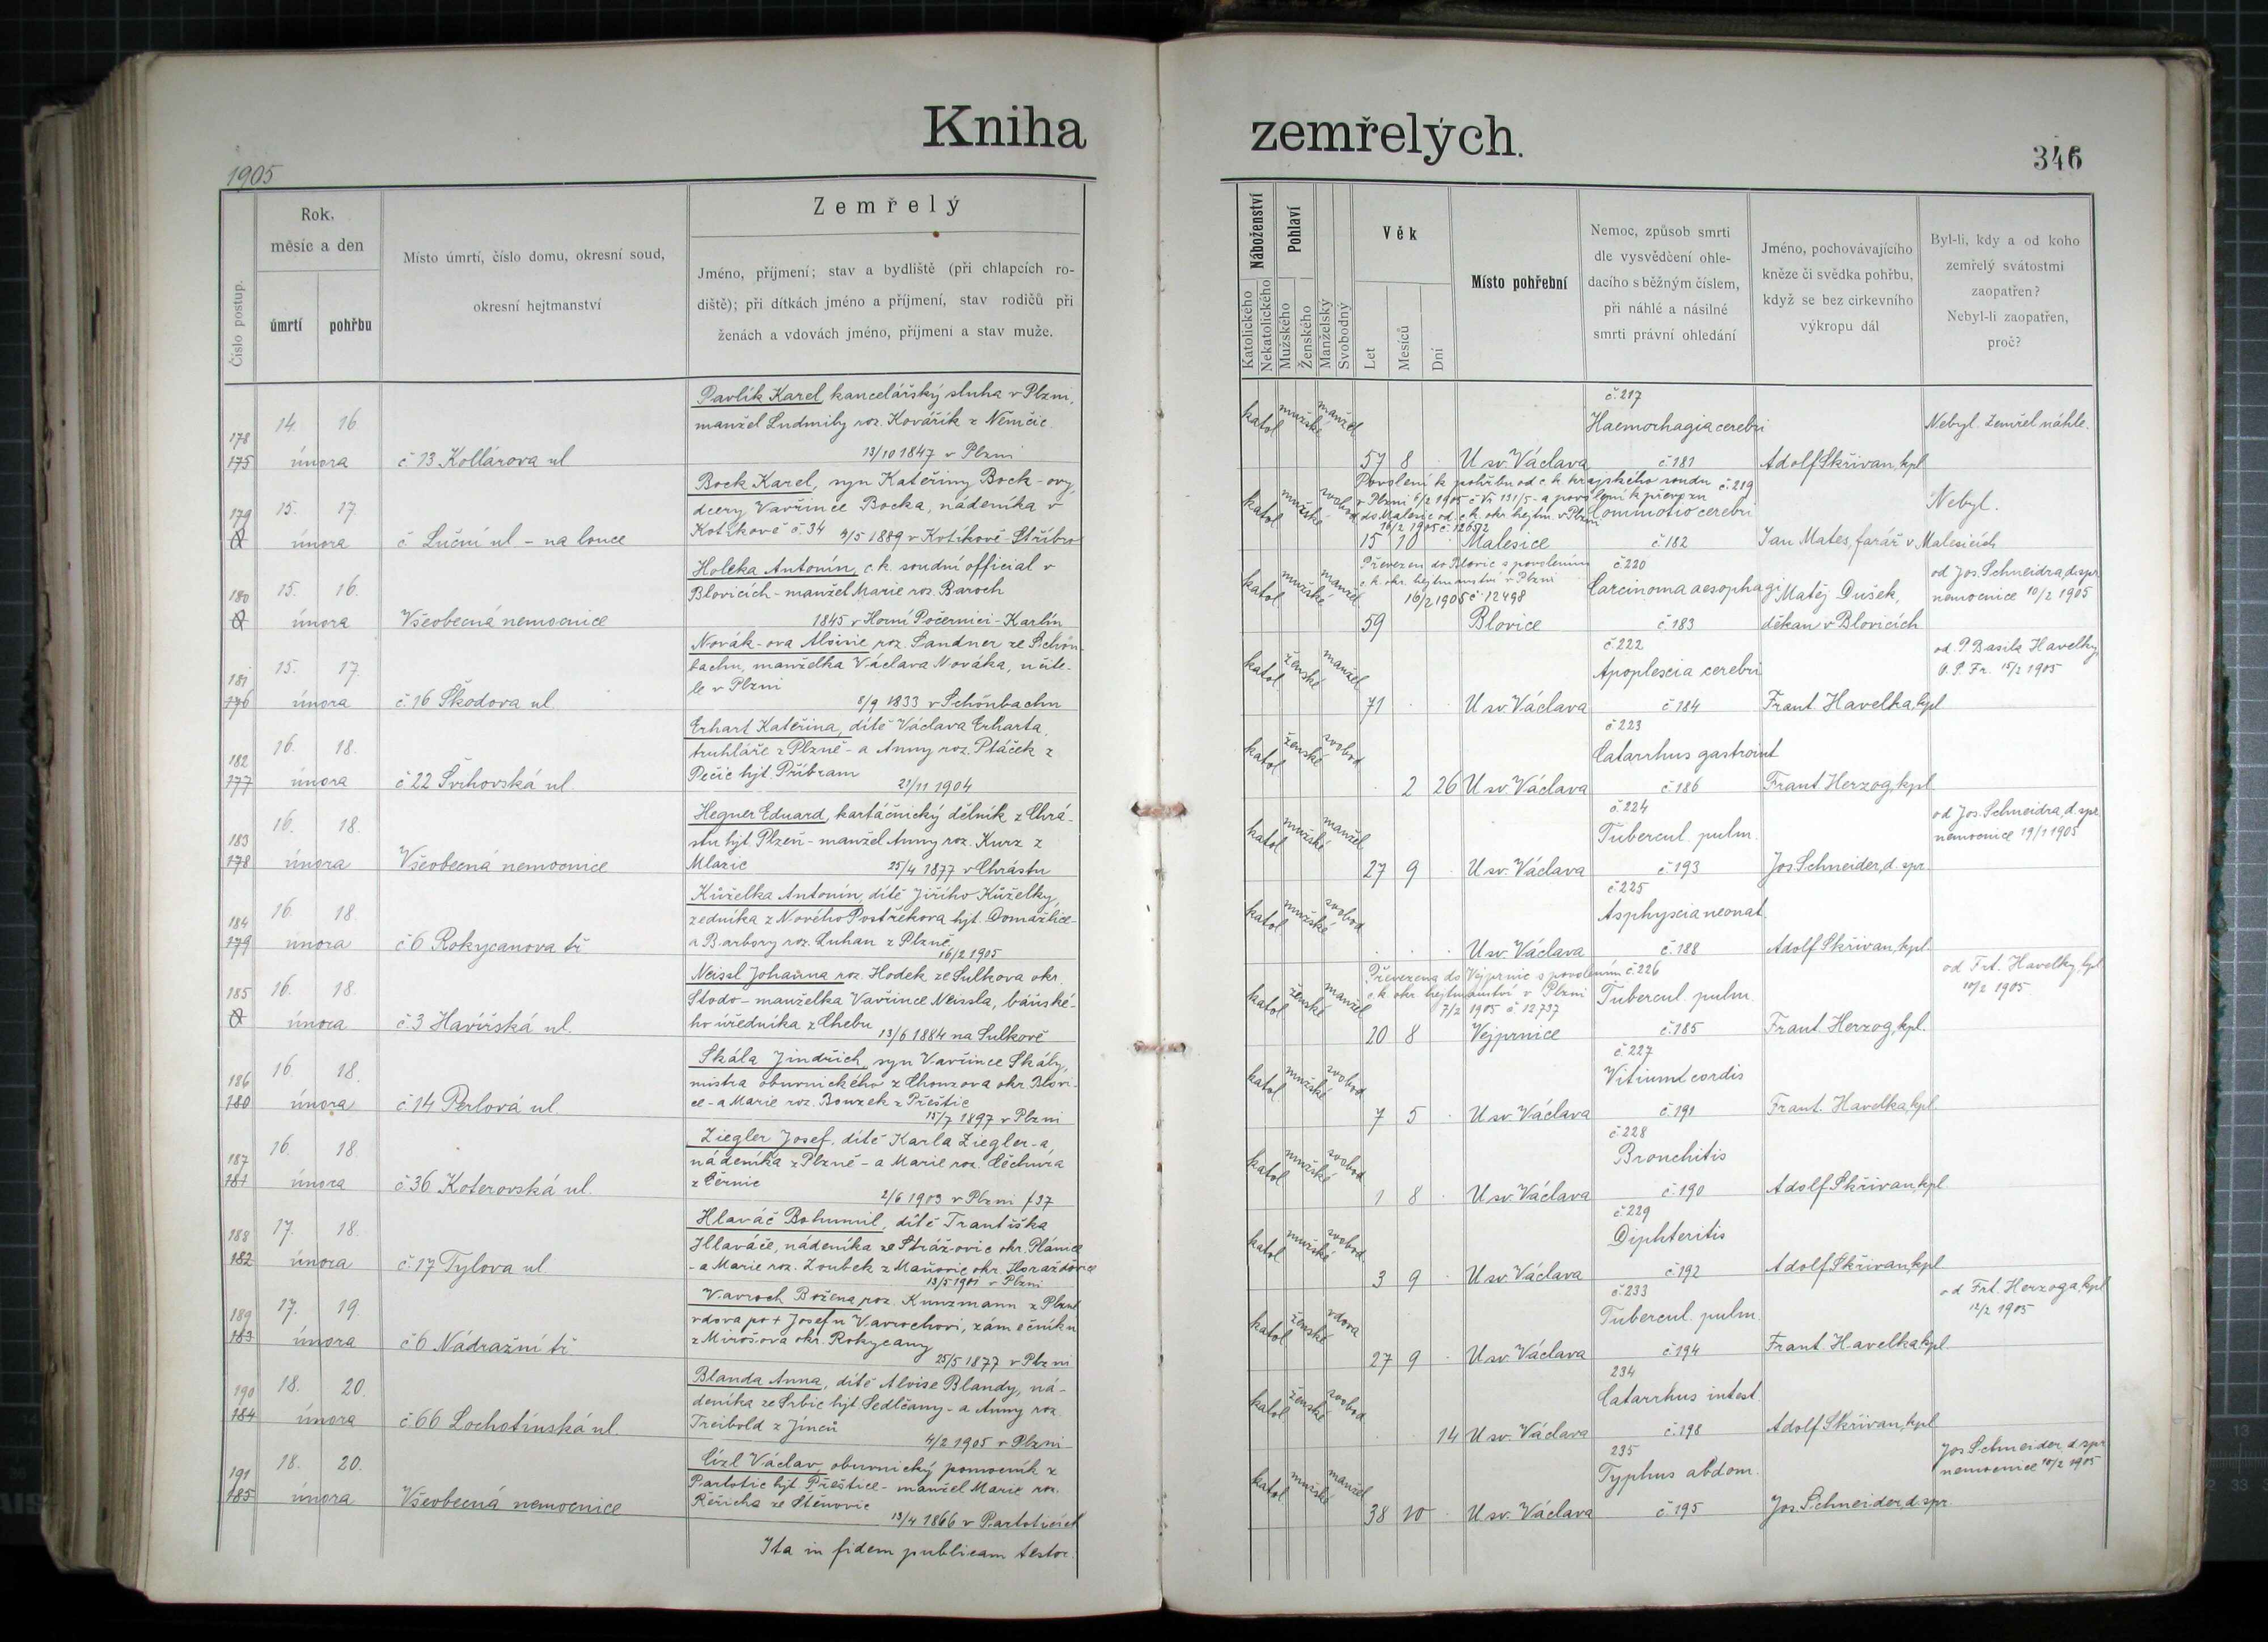 Kniha
zemřelých.
346
1905
Číslo postup.
Rok,
měsíc a den
úmrtí
pohřbu
Místo úmrtí, číslo domu, okresní soud,
okresní hejtmanství
Zemřelý
Jméno, příjmení; stav a bydliště (při chlapcích ro-
diště); při dítkách jméno a příjmení, stav rodičů při
ženách a vdovách jméno, příjmení a stav muže.
Náboženství
Katolického
Nekatolického
Pohlaví
Mužského
Ženského
Manželský
Svobodný
Věk
Let
Mesíců
Dní
Místo pohřební
Nemoc, způsob smrti
dle vysvědčení ohle-
dacího s běžným číslem,
při náhlé a násilné
smrti právní ohledání
Jméno, pochovávajícího
kněze či svědka pohřbu,
když se bez cirkevního
výkropu dál
Byl-li, kdy a od koho
zemřelý svátostmi
zaopatřen?
Nebyl-li zaopatřen,
proč?
178
175
14. 16
února
č 13 Kollárova ul
Pavlík Karel, kancelářský sluha v Plzni,
manžel Ludmily roz. Kovářík z Němčic
13/10 1847 v Plzni
katol mužské manžel
57 8
U sv. Václava
č. 217
Haemorhagia cerebri
č. 181
Adolf Skřivan, kpl
Nebyl. Zemřel náhle.
179
15. 17.
února
č Luční ul – na louce
Bock Karel, syn Kateřiny Bock-ovy,
dcery Vavřince Bocka, nádeníka v
Kotíkově č. 34 4/5 1889 v Kotíkově-Stříbro
katol mužské svobod
Povolení k pohřbu od c. k. krajského soudu
v Plzni 6/2 1905 č Vr 131/5 - a povolení k převozu
do Malesic od c. k. okr. hejtm. v Plzni
16/2 1905 č. 12652
15 10
Malesice
č 219
Commotio cerebri
č. 182
Jan Mates, farář v Malesicích
Nebyl.
180
15. 16.
února
Všeobecná nemocnice
Holcka Antonín, c. k. soudní official v
Blovicích - manžel Marie roz. Baroch
1845 v Horní Počernici - Karlín
katol mužské manžel
Převezen do Blovic s povolením
c. k. okr. hejtmanství v Plzni
16/2 1905 č 12498
59
Blovice
č. 220
Carcinoma aesophagi
č. 183
Matěj Dušek,
děkan v Blovicích
od Jos. Schneidra, d. spr.
nemocnice 10/2 1905
181
176
15. 17.
února
č. 16 Škodova ul.
Novák-ova Aloisie roz. Sandner ze Schön-
bachu, manželka Václava Nováka, učite-
le v Plzni
8/9 1833 v Schönbachu
katol ženské manžel
71
U sv. Václava
č. 222
Apoplescia cerebri
č. 184
Frant. Havelka, kpl
od. P. Basila Havelky,
O. S. Fr. 15/2 1905
182
177
16. 18.
února
č 22 Švihovská ul.
Erhart Kateřina, dítě Václava Erharta,
truhláře z Plzně - a Anny roz. Ptáček z
Pečic hjt. Příbram
21/11 1904
katol ženské svobod
2 26
U sv. Václava
č. 223
Catarrhus gastroint
č. 186
Frant Herzog, kpl
183
178
16. 18.
února
Všeobecná nemocnice
Hegner Eduard, kartáčnický dělník z Chrá-
stu hjt. Plzeň - manžel Anny roz. Kurz z
Mlazic 25/4 1877 v Chrástu
katol mužské manžel
27 9
U sv. Václava
č. 224
Tubercul. pulm.
č. 193
Jos Schneider, d. spr.
od Jos. Schneidra, d. spr.
nemocnice 19/1 1905
184
179
16. 18.
února
č 6 Rokycanova tř
Kůželka Antonín, dítě Jiřího Kůželky,
zedníka z Nového Postřekova hjt. Domažlice-
a Barbory roz. Luhan z Plzně
16/2 1905
katol mužské svobod
U sv. Václava
č. 225
Asphyscia neonat.
č. 188
Adolf Skřivan, kpl.
185
16. 18.
února
č. 3 Havířská ul.
Neissl Johanna roz. Hodek ze Sulkova okr.
Stodo - manželka Vavřince Neissla, báňské-
ho úředníka z Chebu
13/6 1884 na Sulkově
katol ženské manžel
Převezena do Vejprnic s povolením
c. k. okr. hejtmanství v Plzni
7/2 1905 č. 12737
20 8
Vejprnice
č. 226
Tubercul. pulm.
č. 185
Frant. Herzog, kpl.
od Frt. Havelky, kpl
10/2 1905
186
180
16. 18.
února
č. 14 Perlová ul.
Skála Jindřich, syn Vavřince Skály,
mistra obuvnického z Chouzova okr. Blovi-
ce - a Marie roz. Bouzek z Přeštic
15/7 1897 v Plzni
katol mužské svobod
7 5
U sv. Václava
č. 227
Vitium cordis
č. 191
Frant. Havelka, kpl.
187
181
16. 18.
února
č. 36 Koterovská ul.
Ziegler Josef, dítě Karla Ziegler-a,
nádeníka z Plzně - a Marie roz. Čechura
z Černic
2/6 1903 v Plzni f 37
katol mužské svobod
1 8
U sv. Václava
č. 228
Bronchitis
č. 190
Adolf Skřivan, kpl
188
182
17. 18.
února
č. 17 Tylova ul
Hlaváč Bohumil, dítě Františka
Hlaváče, nádeníka ze Strážovic okr. Plánice
- a Marie roz. Zoubek z Maňovic okr. Horažďovice
13/5 1901 v Plzni
katol mužské svobod
3 9
U sv. Václava
č. 229
Diphteritis
č. 192
Adolf Skřivan, kpl
189
183
17. 19.
února
č 6 Nádražní tř.
Vavroch Božena roz. Kunzmann z Plzně
vdova po † Josefu Vavrochovi, zámečníku
z Mirošova okr. Rokycany
25/5 1877 v Plzni
katol ženské vdova
27 9
U sv. Václava
č. 233
Tubercul. pulm.
č. 194
Frant. Havelka, kpl.
od Frt. Herzoga, kpl
12/2 1905
190
184
18. 20.
února
č. 66 Lochotínská ul.
Blanda Anna, dítě Aloise Blandy, ná-
deníka ze Srbic hjt. Sedlčany - a Anny roz.
Treibold z Jinců
4/2 1905 v Plzni
katol ženské svobod
14
U sv. Václava
234
Catarrhus intest.
č. 198
Adolf Skřivan, kpl
191
185
18. 20.
února
Všeobecná nemocnice
Cízl Václav, obuvnický pomocník z
Partotic hjt. Přeštice - manžel Marie roz.
Řeřicha ze Stěnovic
13/4 1866 v Partoticích
katol mužské manžel
38 10
U sv. Václava
235
Typhus abdom.
č. 195
Jos. Schneider, d. spr.
Jos Schneider, d. spr
nemocnice 10/2 1905
Ita in fidem publicam testor.